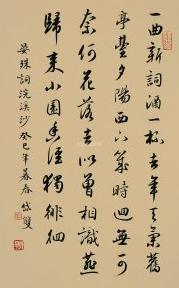 一曲新詞酒一杯去年天氣舊
亭臺夕陽西下幾時迴無可
奈何花落去似曾相識燕
歸來小園香徑獨徘徊
晏殊詞浣溪沙癸巳年暮春